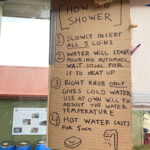 HOW TO
SHOWER
1 SLOWLY INSERT
ALL 5 COINS
2 WATER WILL START
POURING AUTOMATIC,
WAIT 10SEC FOR
IT TO HEAT UP
3 RIGHT KNOB ONLY
GIVES COLD WATER
USE AT OWN WILL TO
ADJUST THE WATER
TEMPERATURE
4 HOT WATER LASTS
FOR 5min